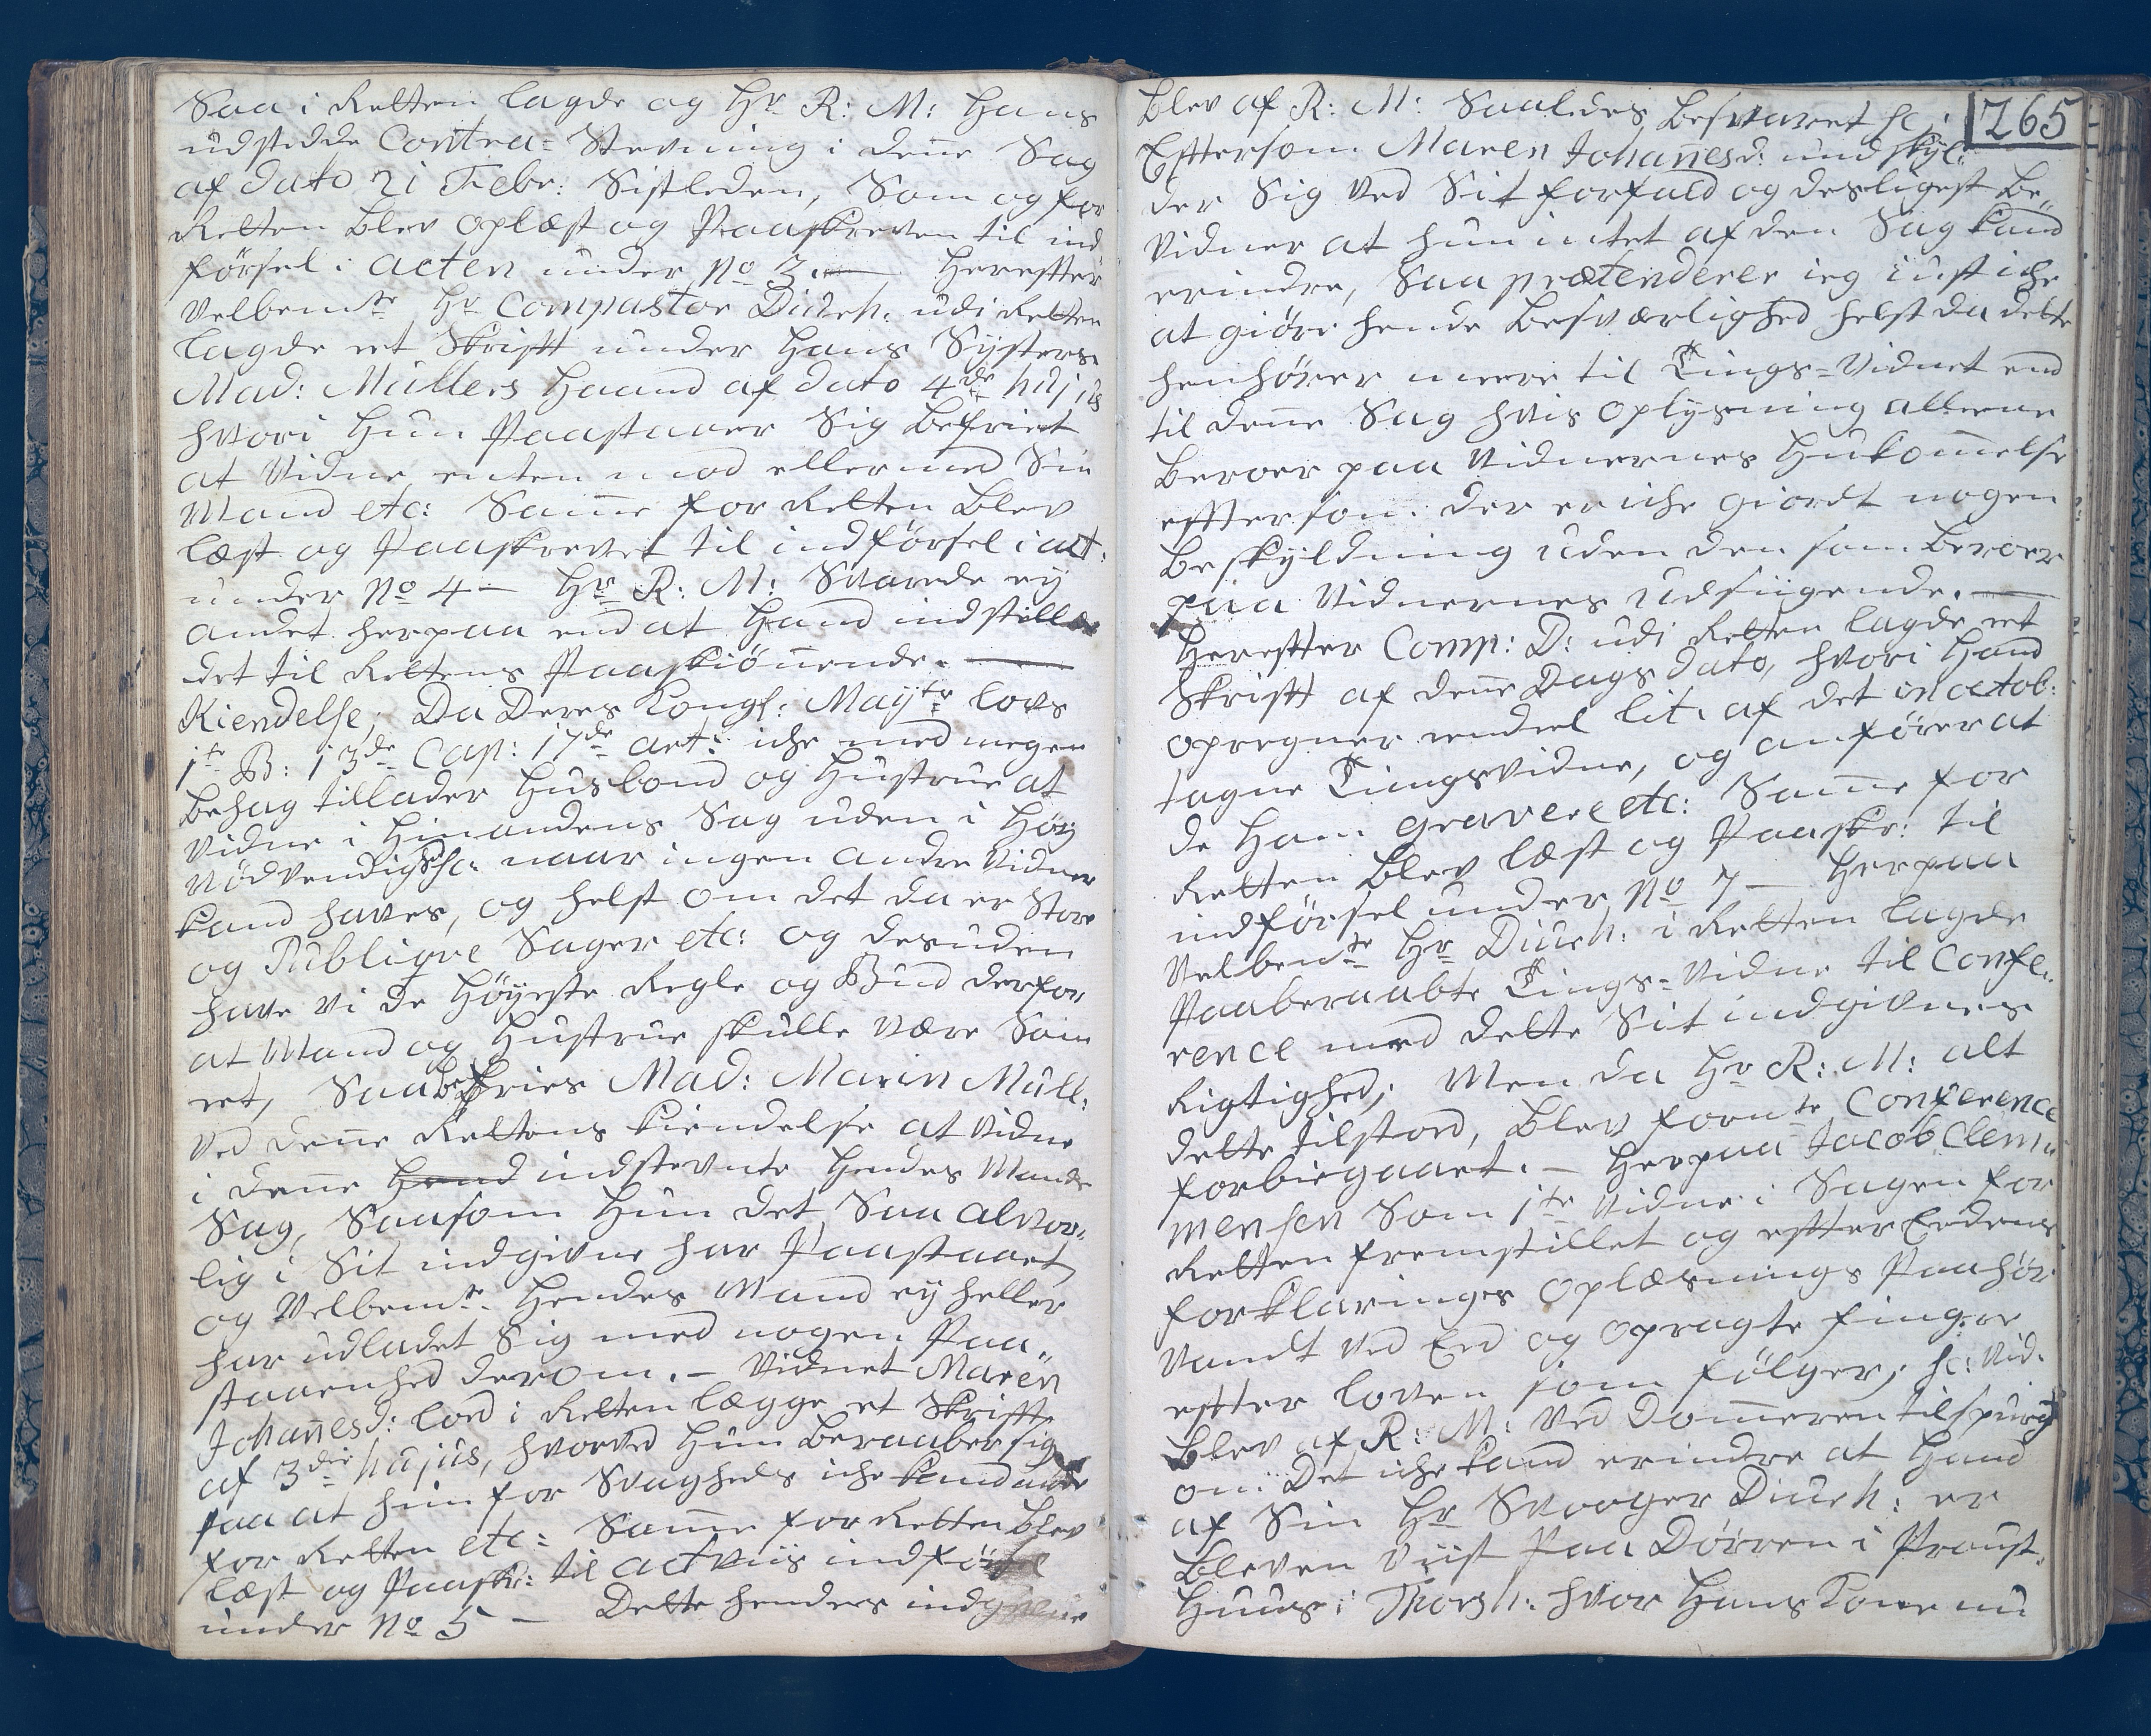 Saa i Retten lagde og Hr R: M: Hans
udstædde Contra= Stevning i denne Sag
af dato 21 Febr: Sistleden, Som og for
Retten blev oplæst og Paaskreven til ind
førsel i acten under No 3. — Hereffter
Velbemte Hr Compastor Diurh: udi Retten
lagde et Skrifft under Hans Systers
Mad: Müllers Haand af dato 4de hujus
hvori Hun Paastaaer Sig befriet
at Vidne enten mod eller med Sin
Mand etc: Samme for Retten blev
læst og Paaskrevet til indførsel i act:
under No 4 — Hr R: M: Svarede ey
andet herpaa end at Hand indstillede
det til Rettens Paaskiønnende. —
Kiendelse; Da Deres Kongl: Mayts lovs
1te B: 13de Cap: 17de art: iche med megen
behag tillader Husbond og Hustrue at
Vidne i Hinandens Sag uden i Høy
Nødvendighed sc: naar ingen andre Vidner
kand haves, og helst om det da er Store
og Publiqve Sager etc: og desuden
have vi de Høyeste Regle og Bud derfor
at Mand og Hustrue skulle være Som
eet, Saa befries Mad: Maren Müll:
ved denne Rettens kiendelse at vidne
i denne Hend indstevnte Hendes Mands
Sag, Saasom Hun det Saa alvor=
lig i Sit indgivne har Paastaaet
og Velbemte Hendes Mand ey heller
har udladet Sig med nogen Paa=
staaenhed derom. — Vidnet Maren
Johannesd: lod i Retten lægge et Skrifft
af 3die hujus, hvorved Hun beraaber sig
paa at hun for Svagheds iche kand
for Retten etc: Samme for Retten blev
læst og Paaskr: til actviis indførsel
under No 5 — Dette hendes indgivne
265
blev af R: M: Saaledes besvaret sc:
Efftersom Maren Johannesd: undskyl=
der Sig ved Sit forfald og desligest be=
vidner at hun intet af den Sag kand
erindre, Saa prætenderer ieg iust iche
at giøre hende besværlighed helst da dette
henhører meere til Tings=Vidnet end
til denne Sag hvis oplysning alleene
beroer paa Vidnernes Hukommelse
effterson: der er iche giordt nogen
beskyldning uden den som beroer
paa Vidnernes udsiigende. —
Hereffter Comp: D: udi Retten lagde et
Skrifft af denne Dags dato, hvori Hand
opregner endeel lit: af det in octob:
tagne Tingsvidne, og anfører at
de Ham gravere etc: Samme for
Retten blev læst og Paaskr: til
indførsel under No 7 — Herpaa
Velbemte Hr Diurh: i Retten lagde
Paaberaabte Tings=Vidne til Confe=
rence med dette Sit indgivnes
Rigtighed; Men da Hr R: M: alt
dette tilstod, blev fornte Conference
forbiegaaet. — Herpaa Jacob Clem=
mensen Som 1te Vidne i Sagen for
Retten fremstillet og effter Eedens
forklarings oplæsnings Paahør
vandt ved Eed og opragte fingre
effter loven som følger; sc: Vid:
blev af R: M: ved Dommeren tilspurgt
om: Det iche kand erindre at Hand
af Sin Hr Svoger Diurh: er
bleven viist Paa Dørren i Proust=
Huuset i Thorsh: hvor Hans Kone nu